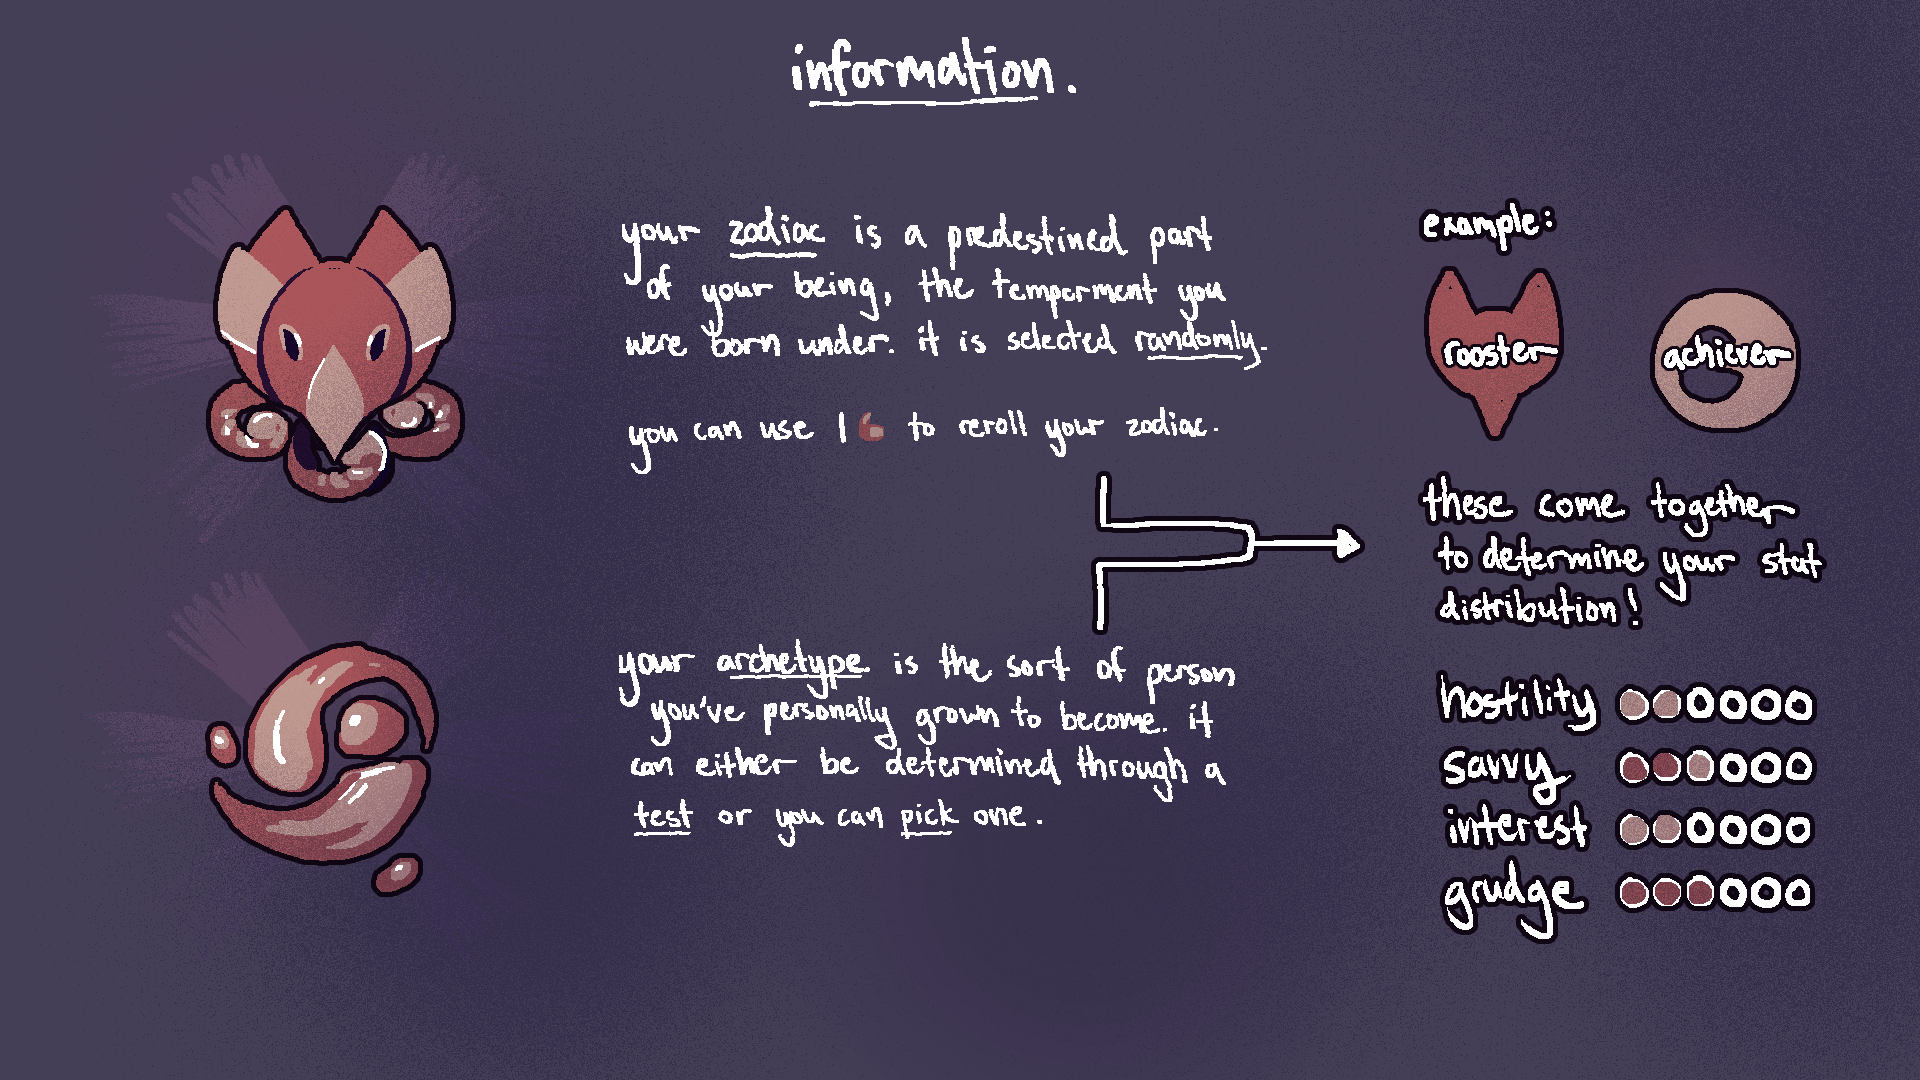 information.
your zodiac is a predestined part
of your being, the temperment you
were born under. it is selected randomly.
you can use 1 to reroll your zodiac.
your archetype is the sort of person
you've personally grown to become. it
can either be determined through a
test or you can pick one.
example:
rooster
achiever
these come together
to determine your stat
distribution!
hostility
savvy
interest
grudge